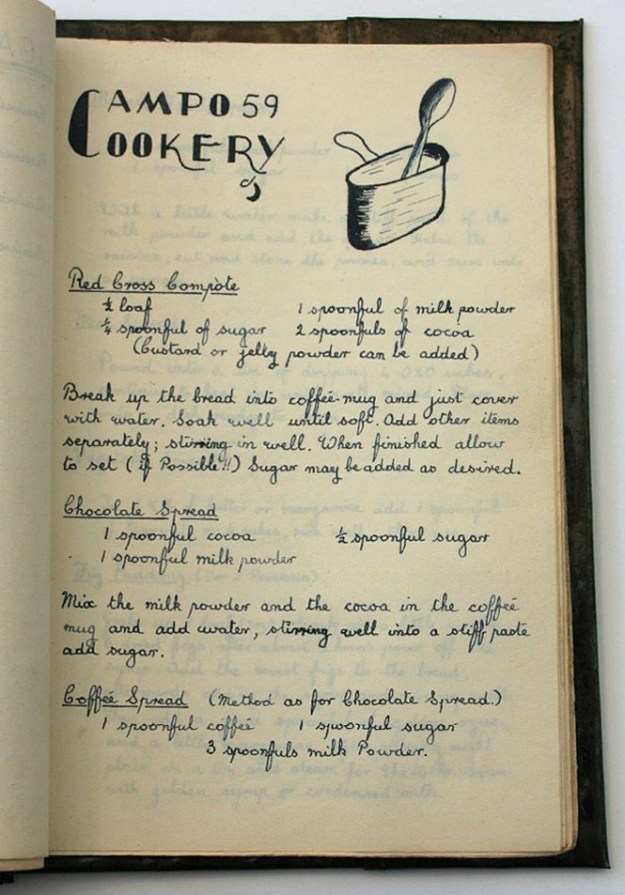 CAMPO 59
COOKERY
Red Cross Compòte
½ loaf 1 spoonful of milk powder
¼ spoonful of sugar 2 spoonfuls of cocoa
(Custard or jelly powder can be added)
Break up the bread into coffee-mug and just cover
with water. Soak well until soft. Add other items
separately; stirring in well. When finished allow
to set (if Possible!!) Sugar may be added as desired.
Chocolate Spread
1 spoonful cocoa ½ spoonful sugar
1 spoonful milk powder
Mix the milk powder and the cocoa in the coffee
mug and add water, stirring well into a stiff paste
add sugar.
Coffee Spread (Method as for Chocolate Spread.)
1 spoonful coffee 1 spoonful sugar
3 spoonfuls milk Powder.